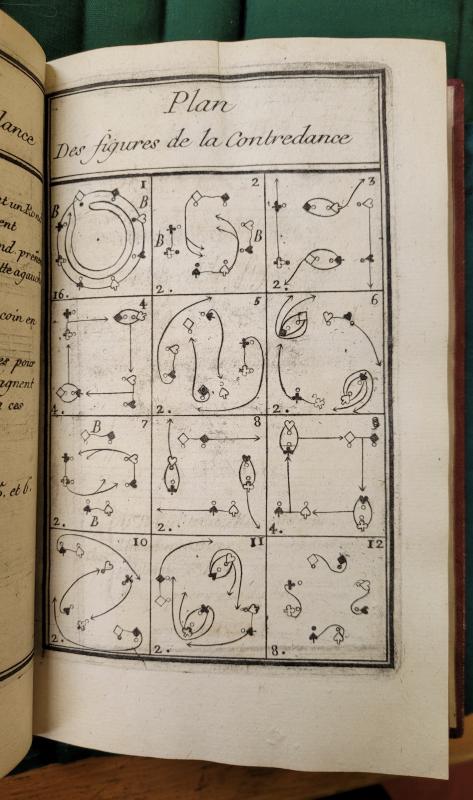 Plan
Des figures de la Contredance
1 2 3
B B B B
16. 2. 2.
4 5 6
4. 2. 2.
7 8 9
B
B
2. 2. 4.
10 11 12
2. 2. 8.
dance
et un Ron
ent
nd. preñe
tte agauch
coin en
es pour
agnent
a ces
5. et 6.